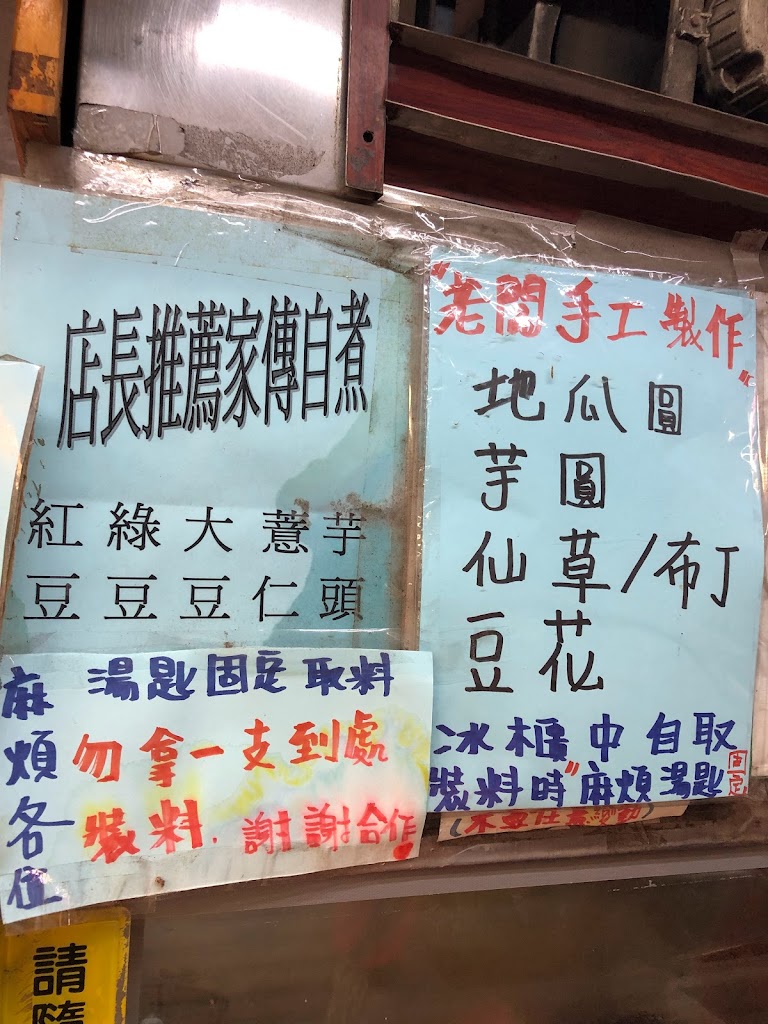 店長推薦家傳白煮
紅 綠 大 薏 芋
豆 豆 豆 仁 頭
麻煩各位
湯匙固定取料
勿拿一支到處
裝料. 謝謝合作!
"老闆手工製作"
地瓜圓
芋圓
仙草/布丁
豆花
冰櫃中自取
裝料時"麻煩湯匙固定
請隨